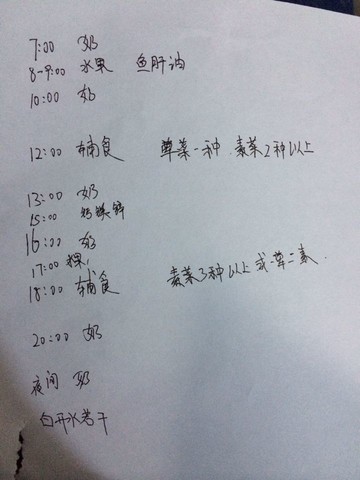 7:00 奶
8-9:00 水果 鱼肝油
10:00 奶
12:00 辅食 荤菜一种 素菜2种以上
13:00 奶
15:00 钙铁锌
16:00 奶
17:00 水果
18:00 辅食 素菜3种以上或一荤二素.
20:00 奶
夜间 奶
白开水若干